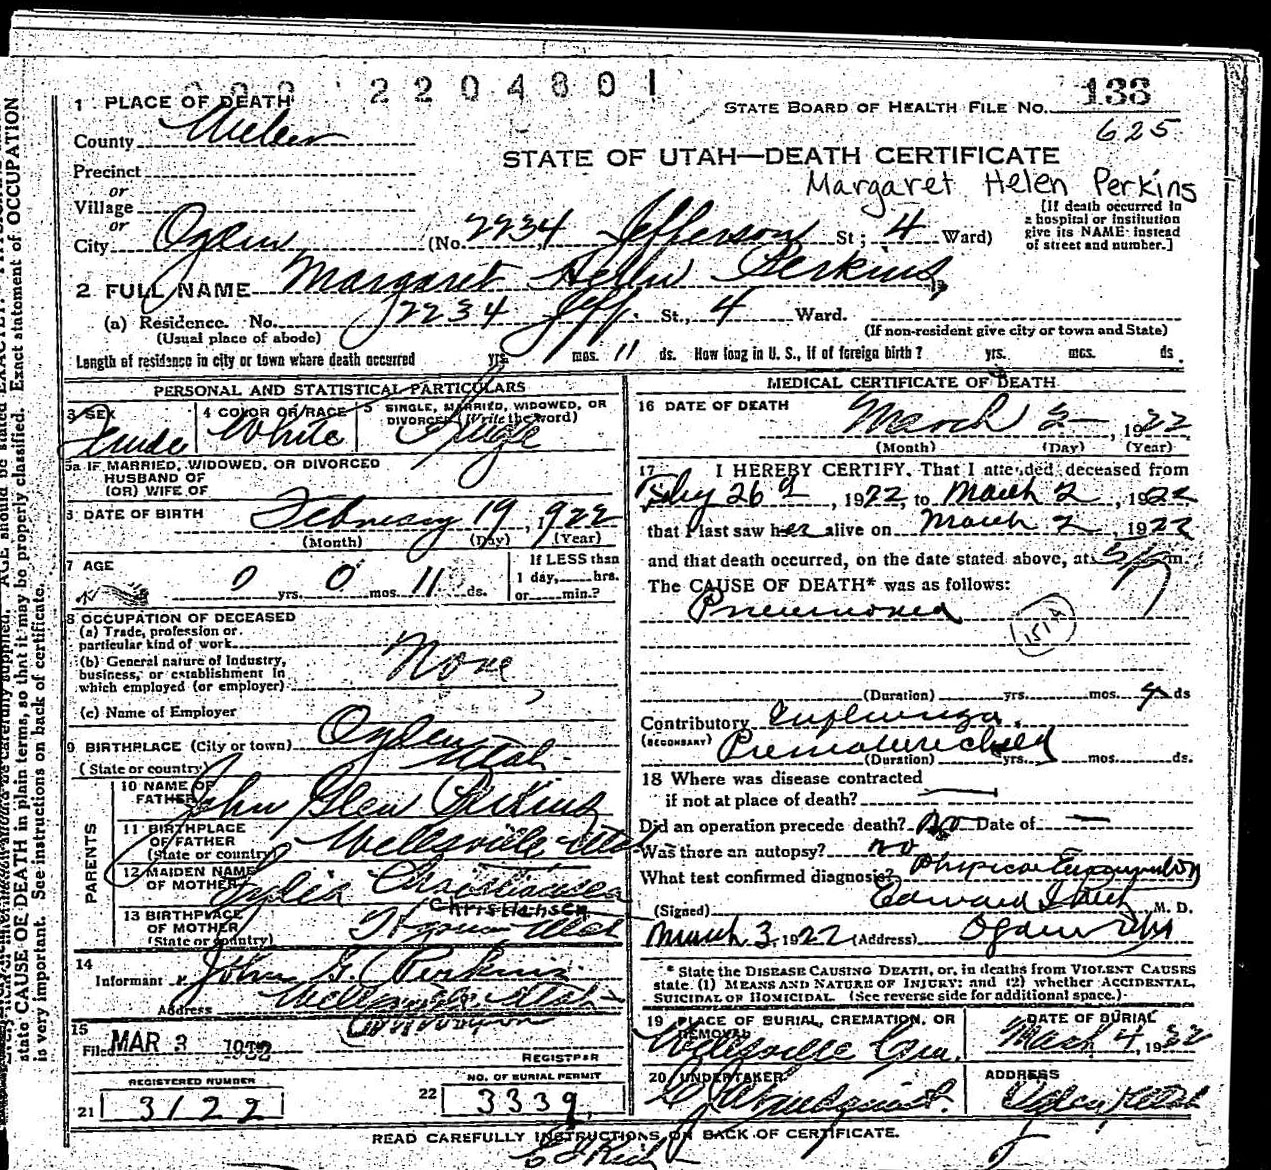 2204801
STATE BOARD OF HEALTH FILE NO. 133
625
1 PLACE OF DEATH
County Weber
STATE OF UTAH—DEATH CERTIFICATE
Margaret Helen Perkins
Precinct
or
Village
or
City Ogden (No 2234 Jefferson St; 4 Ward)
[If death occurred in a hospital or institution give its NAME instead of street and number.]
2 FULL NAME Margaret Helen Perkins
(a) Residence. No. 2234 Jeff. St., 4 Ward.
(Usual place of abode) (If non-resident give city or town and State)
Length of residence in city or town where death occurred yrs. mos. 11 ds. How long in U. S., if of foreign birth? yrs. mos. ds.
PERSONAL AND STATISTICAL PARTICULARS
3 SEX 4 COLOR OR RACE 5 SINGLE, MARRIED, WIDOWED, OR DIVORCED (Write the word)
Female White Single
5a IF MARRIED, WIDOWED, OR DIVORCED
HUSBAND OF
(OR) WIFE OF
6 DATE OF BIRTH February 19, 1922
(Month) (Day) (Year)
7 AGE 0 yrs. 0 mos. 11 ds.
If LESS than
1 day, hrs.
or min.?
8 OCCUPATION OF DECEASED
(a) Trade, profession or
particular kind of work
None
(b) General nature of Industry,
business, or establishment in
which employed (or employer)
(c) Name of Employer
9 BIRTHPLACE (City or town) Ogden
(State or country) Utah.
PARENTS
10 NAME OF FATHER John Glen Perkins
11 BIRTHPLACE OF FATHER (State or country) Wellsville Utah
12 MAIDEN NAME OF MOTHER Lydia Christiansen
Christiansen
13 BIRTHPLACE OF MOTHER (State or country) Hyrum Utah
14
Informant John G. Perkins
Address Wellsville Utah
15
Filed MAR 3 1922
REGISTRAR
REGISTERED NUMBER
21 3122
NO. OF BURIAL PERMIT
22 3339
MEDICAL CERTIFICATE OF DEATH
16 DATE OF DEATH
March 2, 1922
(Month) (Day) (Year)
17 I HEREBY CERTIFY. That I attended deceased from
Feby 26, 1922, to March 2, 1922
that I last saw her alive on March 2 1922
and that death occurred, on the date stated above, at m.
The CAUSE OF DEATH* was as follows:
Pneumonia
151A
(Duration) yrs. mos. 4 ds
Contributory Influenza.
(SECONDARY) Premature child
(Duration) yrs. mos. ds.
18 Where was disease contracted
if not at place of death?
Did an operation precede death? No Date of
Was there an autopsy? no
What test confirmed diagnosis? Physical Examination
(Signed) Edward I Rich M. D.
March 3, 1922 (Address) Ogden Utah
* State the DISEASE CAUSING DEATH, or, in deaths from VIOLENT CAUSES
state (1) MEANS AND NATURE OF INJURY; and (2) whether ACCIDENTAL,
SUICIDAL OR HOMICIDAL. (See reverse side for additional space.)
19 PLACE OF BURIAL, CREMATION, OR REMOVAL DATE OF BURIAL
Wellsville Cem. March 4, 1922
20 UNDERTAKER ADDRESS
Ogden Utah
READ CAREFULLY INSTRUCTIONS ON BACK OF CERTIFICATE.
state CAUSE OF DEATH in plain terms, so that it may be properly classified. Exact statement of OCCUPATION
is very important. See instructions on back of certificate.